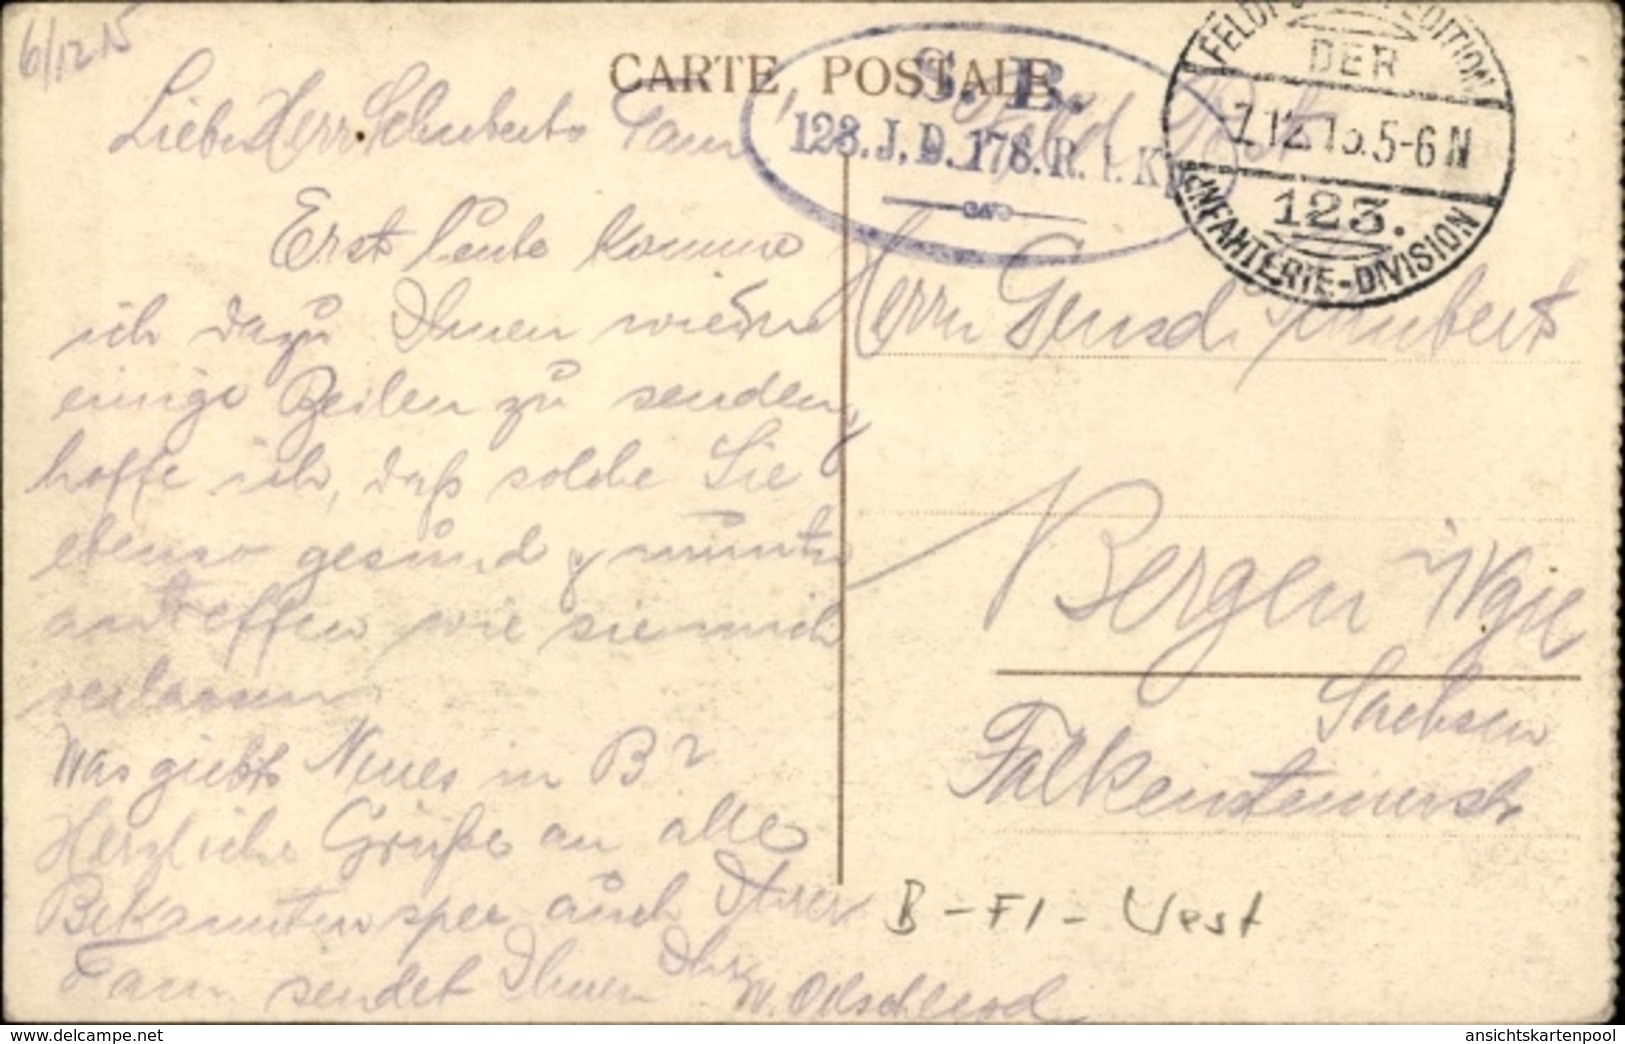 6/12 15
CARTE POSTALE
S. B.
123. J. D. 178. R. 1. K
FELDPOSTEXPEDITION
DER
-7.12.15.5-6N
123.
INFANTERIE-DIVISION
Feld Post
Herrn Gensd. Schubert
Bergen i/Vgtl
Sachsen
Falkensteinerstr
B - Fl - West
Liebe Herr Schuberts Fam
Erst heute komme
ich dazu Ihnen wieder
einige Zeilen zu senden,
hoffe ich, daß solche Sie
ebenso gesund & munter
antreffen wie sie mich
verlassen
Was giebts Neues in B?
Herzliche Grüße an alle
Bekannten auch Ihrer
Fam. sendet Ihnen Ihr
W.
delcampe.net
ansichtskartenpool